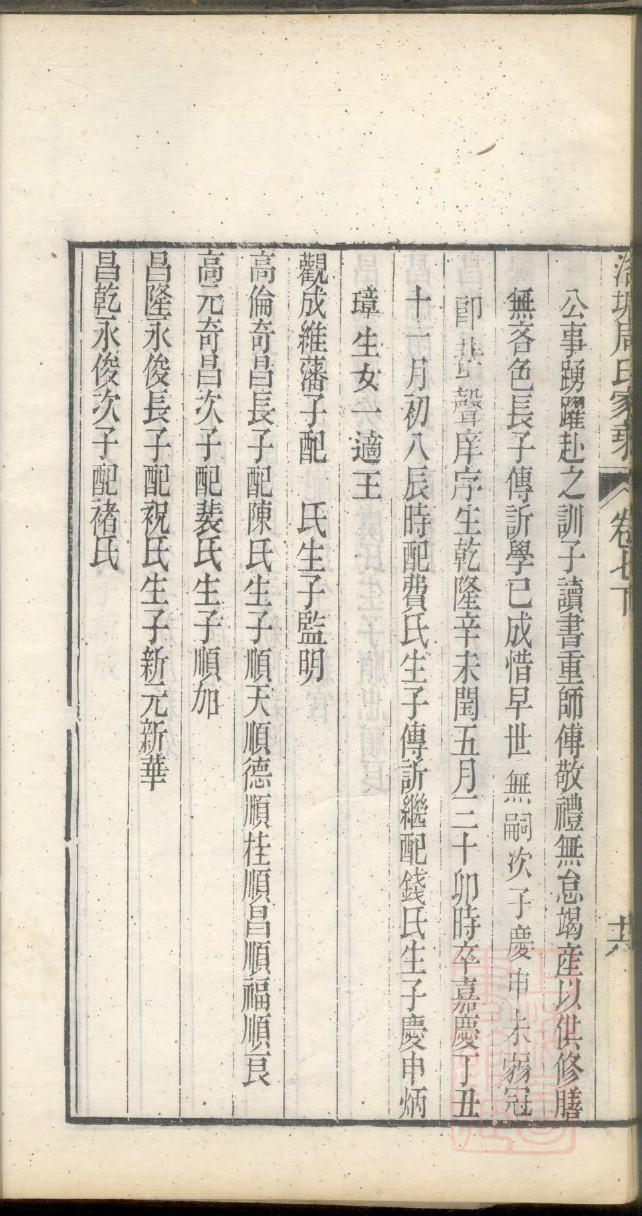 洛塘周氏家乘 卷七下
公事踴躍赴之訓子讀書重師傅敬禮無怠竭產以供修膳
無吝色長子傳訢學已成惜早世無嗣次子慶申未弱冠
卽 聲庠字生乾隆辛未閏五月三十卯時卒嘉慶丁丑
十一月初八辰時配費氏生子傳訢繼配錢氏生子慶申炳
璋生女一適王
觀成維藩子配 氏生子監明
高倫奇昌長子配陳氏生子順天順德順桂順昌順福順良
高元奇昌次子配裴氏生子順加
昌隆永俊長子配祝氏生子新元新華
昌乾永俊次子配褚氏